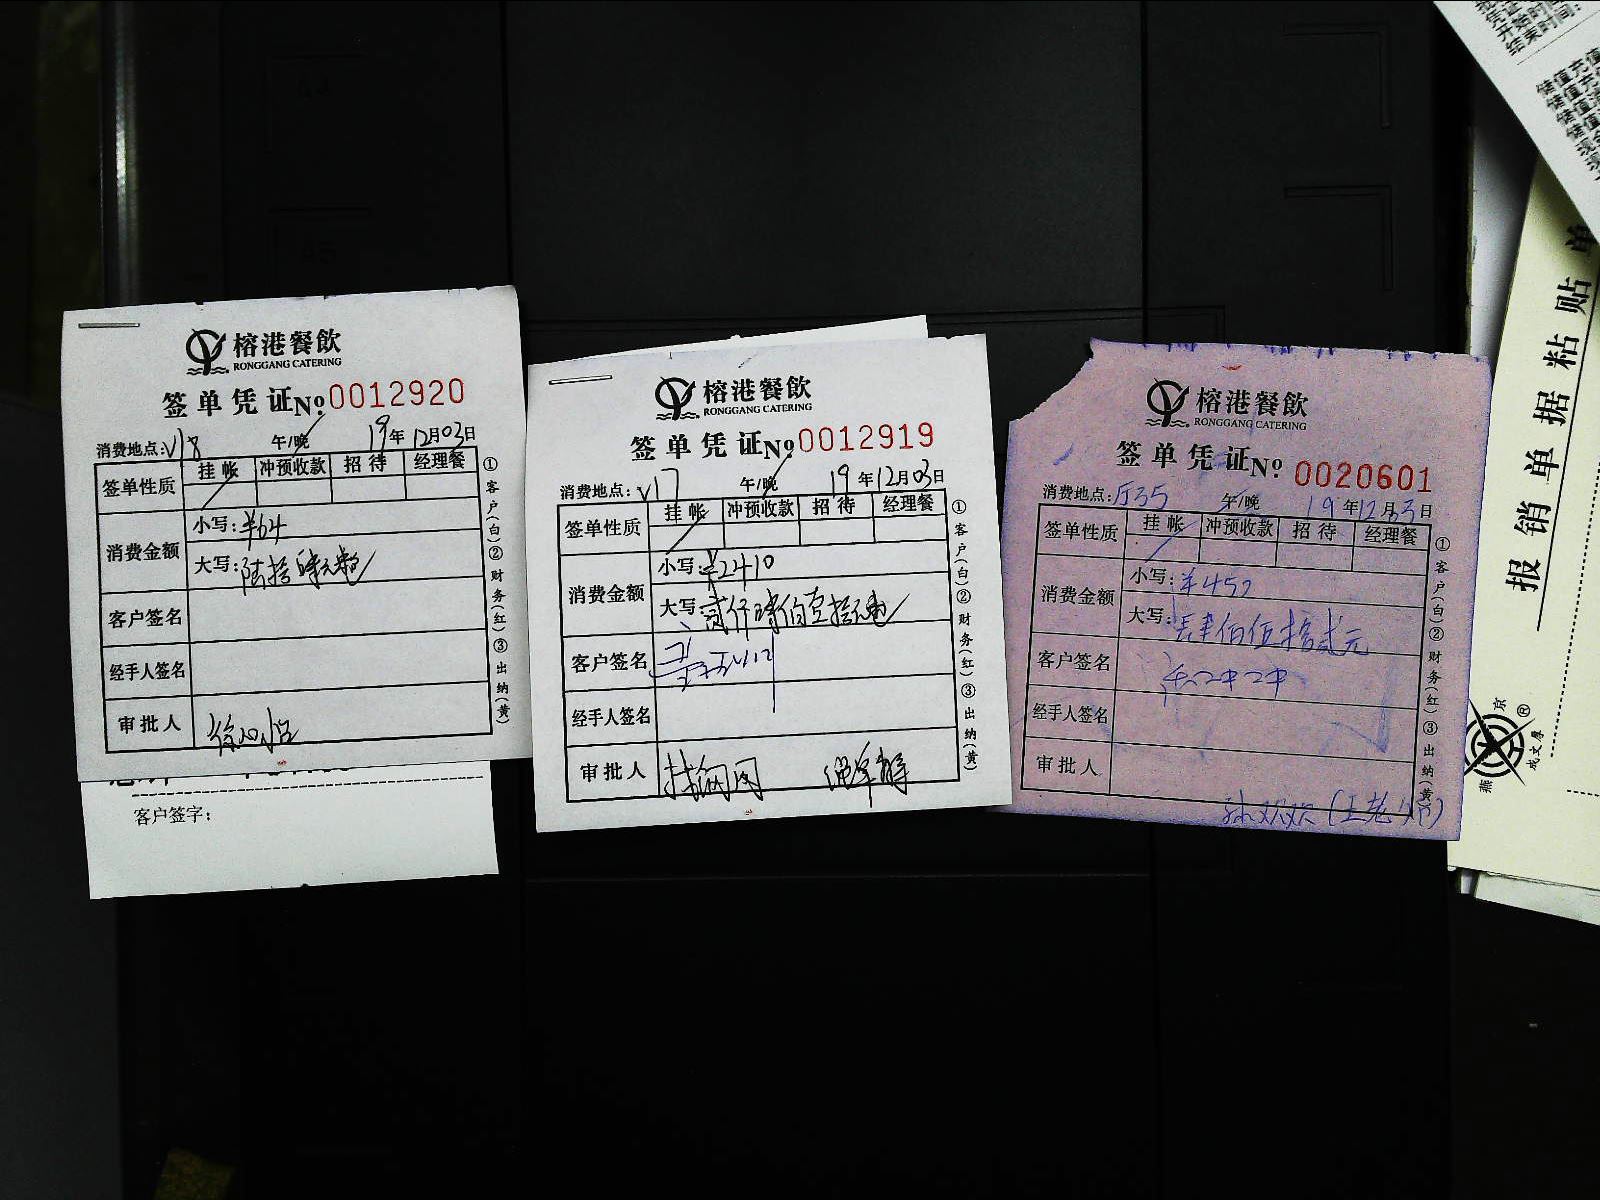 榕港餐飲
RONGGANG CATERING
签单凭证 No 0012920
消费地点:V18 午/晚 19年12月03日
签单性质 挂帐 冲预收款 招待 经理餐
消费金额
小写:¥64
大写:陆拾肆元整
客户签名
经手人签名
审批人
①客户(白)②财务(红)③出纳(黄)
客户签字:
榕港餐飲
RONGGANG CATERING
签单凭证 No 0012919
消费地点:V17 午/晚 19年12月03日
签单性质 挂帐 冲预收款 招待 经理餐
消费金额
小写:¥2410
大写:贰仟肆佰壹拾元整
客户签名
经手人签名
审批人
①客户(白)②财务(红)③出纳(黄)
榕港餐飲
RONGGANG CATERING
签单凭证 No 0020601
消费地点:厅35 午/晚 19年12月3日
签单性质 挂帐 冲预收款 招待 经理餐
消费金额
小写:¥452
大写:肆佰伍拾贰元
客户签名
经手人签名
审批人
①客户(白)②财务(红)③出纳(黄)
开始时间:
结束时间:
储值充值
储值充值
储值消
储值
现金
报销单据粘贴单
燕京®
成文厚